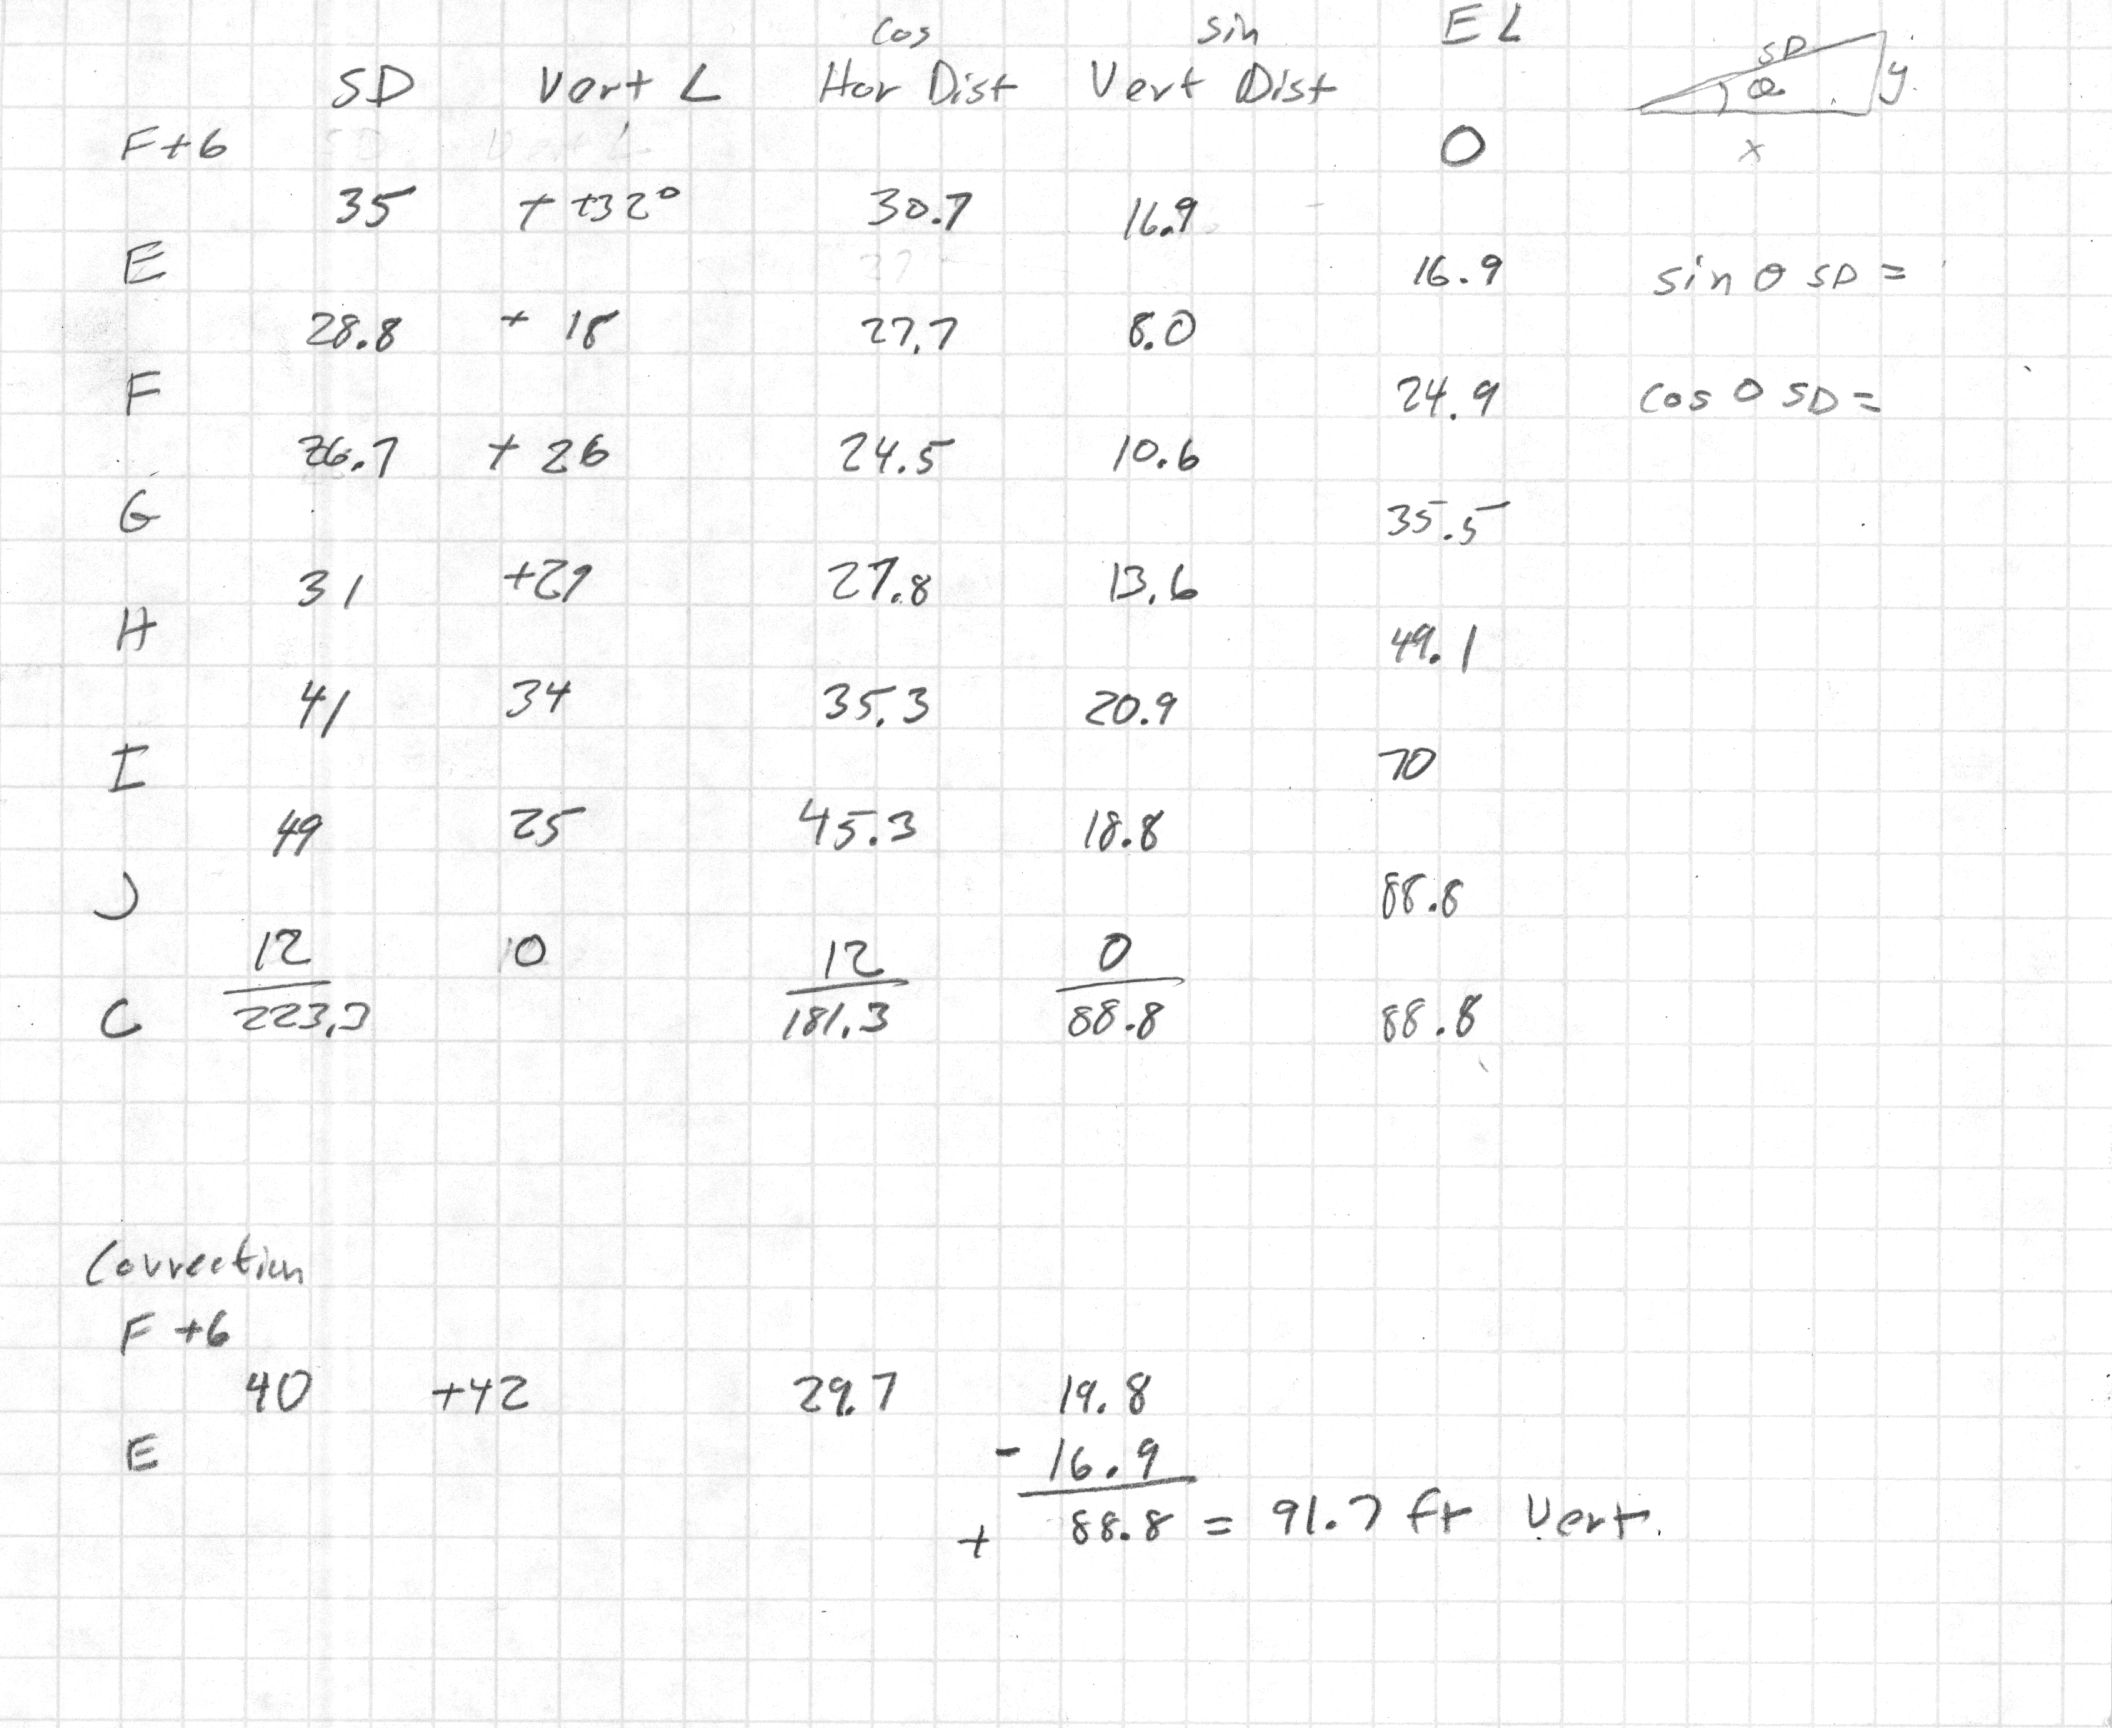 cos sin EL
SD Vert ∠ Hor Dist Vert Dist SD θ y
F+6 0 x
35 + +32° 30.7 16.9
E 16.9 sin θ SD =
28.8 + 18 27.7 8.0
F 24.9 cos θ SD =
26.7 + 26 24.5 10.6
G 35.5
31 +29 27.8 13.6
H 49.1
41 34 35.3 20.9
I 70
49 25 45.3 18.8
J 88.8
12 0 12 0
C 223.3 181.3 88.8 88.8
Correction
F +6
40 +42 29.7 19.8
E - 16.9
+ 88.8 = 91.7 ft Vert.